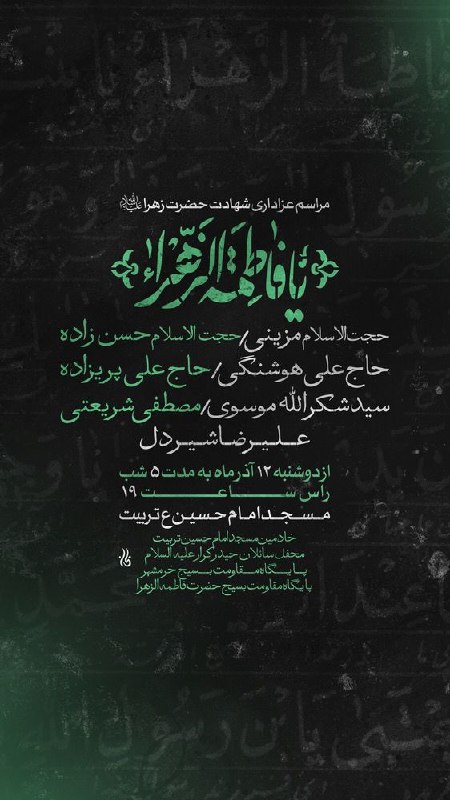 مراسم عزاداری شهادت حضرت زهرا
یا فاطمة الزهراء
حجت‌الاسلام مزینی/حجت الاسلام حسن زاده
حاج علی هوشنگی/حاج علی پریزاده
سید شکرالله موسوی/مصطفی شریعتی
علیرضا شیردل
از دوشنبه ۱۲ آذر ماه به مدت ۵ شب
راس ساعت ۱۹
مسجد امام حسین ع تربیت
خادمین مسجد امام حسین تربیت
محفل سائلان حیدر کرار علیه السلام
پایگاه مقاومت بسیج خرمشهر
پایگاه مقاومت بسیج حضرت فاطمه الزهرا